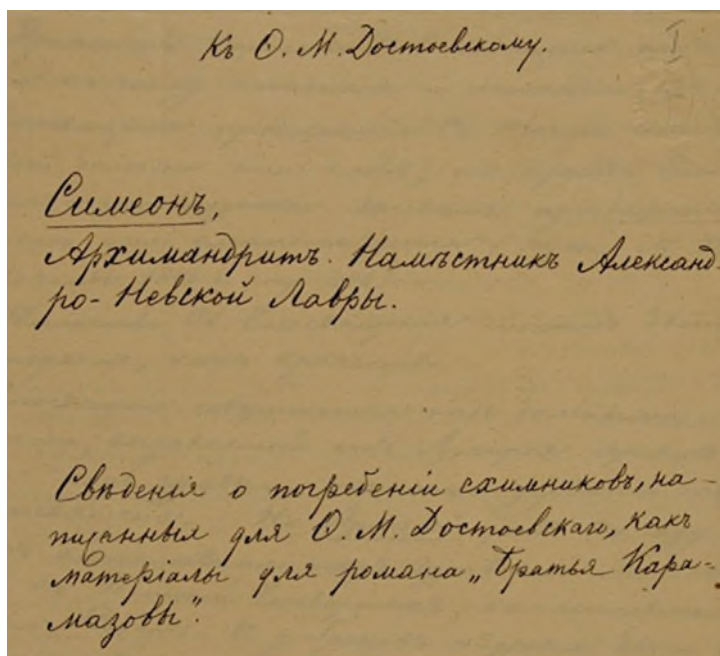 Къ Ѳ. М. Достоевскому.
I
Симеонъ,
Архимандритъ. Намѣстникъ Александ-
ро-Невской Лавры.
Свѣденія о погребеніи схимниковъ, на-
писанныя для Ѳ. М. Достоевскаго, какъ
матеріалы для романа „Братья Кара-
мазовы".